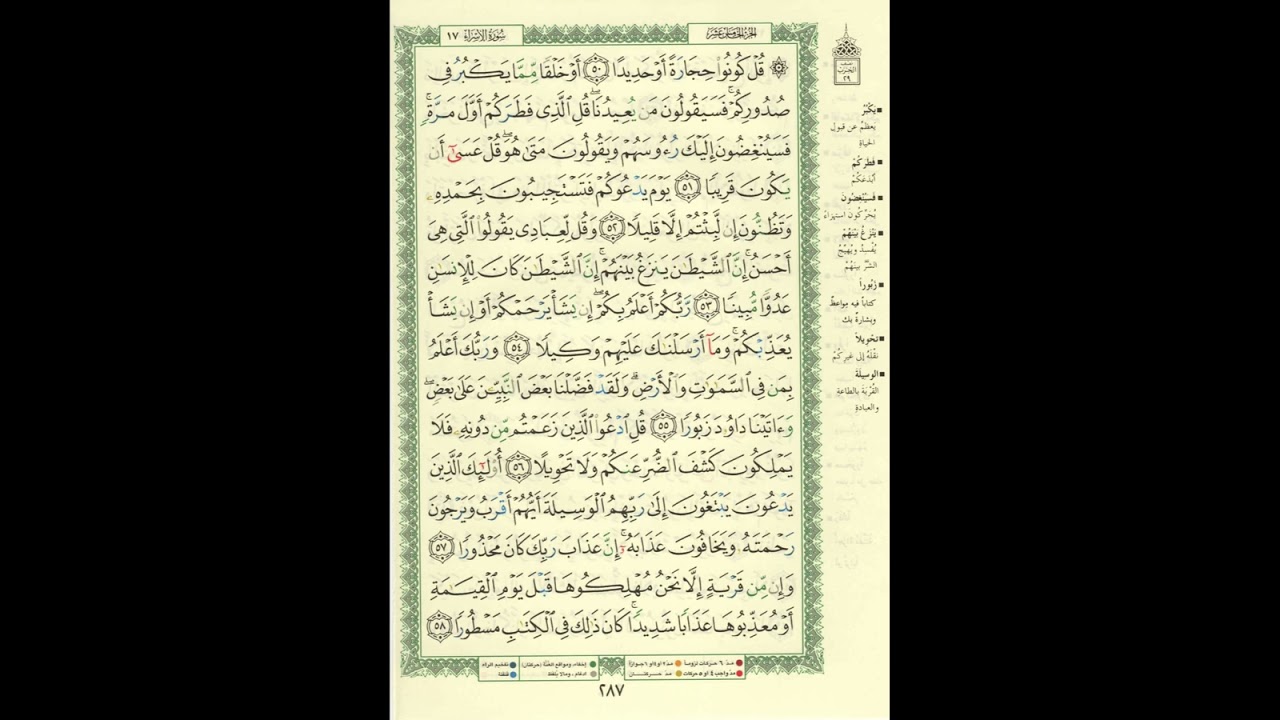 سُورَةُ الإِسْرَاءِ ١٧
۞ قُلْ كُونُوا۟ حِجَارَةً أَوْ حَدِيدًا ٥٠ أَوْ خَلْقًا مِّمَّا يَكْبُرُ فِى
صُدُورِكُمْ ۚ فَسَيَقُولُونَ مَن يُعِيدُنَا ۖ قُلِ ٱلَّذِى فَطَرَكُمْ أَوَّلَ مَرَّةٍ ۚ
فَسَيُنْغِضُونَ إِلَيْكَ رُءُوسَهُمْ وَيَقُولُونَ مَتَىٰ هُوَ ۖ قُلْ عَسَىٰٓ أَن
يَكُونَ قَرِيبًا ٥١ يَوْمَ يَدْعُوكُمْ فَتَسْتَجِيبُونَ بِحَمْدِهِۦ
وَتَظُنُّونَ إِن لَّبِثْتُمْ إِلَّا قَلِيلًا ٥٢ وَقُل لِّعِبَادِى يَقُولُوا۟ ٱلَّتِى هِىَ
أَحْسَنُ ۚ إِنَّ ٱلشَّيْطَٰنَ يَنزَغُ بَيْنَهُمْ ۚ إِنَّ ٱلشَّيْطَٰنَ كَانَ لِلْإِنسَٰنِ
عَدُوًّا مُّبِينًا ٥٣ رَّبُّكُمْ أَعْلَمُ بِكُمْ ۖ إِن يَشَأْ يَرْحَمْكُمْ أَوْ إِن يَشَأْ
يُعَذِّبْكُمْ ۚ وَمَآ أَرْسَلْنَٰكَ عَلَيْهِمْ وَكِيلًا ٥٤ وَرَبُّكَ أَعْلَمُ
بِمَن فِى ٱلسَّمَٰوَٰتِ وَٱلْأَرْضِ ۗ وَلَقَدْ فَضَّلْنَا بَعْضَ ٱلنَّبِيِّـۧنَ عَلَىٰ بَعْضٍ ۖ
وَءَاتَيْنَا دَاوُۥدَ زَبُورًا ٥٥ قُلِ ٱدْعُوا۟ ٱلَّذِينَ زَعَمْتُم مِّن دُونِهِۦ فَلَا
يَمْلِكُونَ كَشْفَ ٱلضُّرِّ عَنكُمْ وَلَا تَحْوِيلًا ٥٦ أُو۟لَٰٓئِكَ ٱلَّذِينَ
يَدْعُونَ يَبْتَغُونَ إِلَىٰ رَبِّهِمُ ٱلْوَسِيلَةَ أَيُّهُمْ أَقْرَبُ وَيَرْجُونَ
رَحْمَتَهُۥ وَيَخَافُونَ عَذَابَهُۥٓ ۚ إِنَّ عَذَابَ رَبِّكَ كَانَ مَحْذُورًا ٥٧
وَإِن مِّن قَرْيَةٍ إِلَّا نَحْنُ مُهْلِكُوهَا قَبْلَ يَوْمِ ٱلْقِيَٰمَةِ
أَوْ مُعَذِّبُوهَا عَذَابًا شَدِيدًا ۚ كَانَ ذَٰلِكَ فِى ٱلْكِتَٰبِ مَسْطُورًا ٥٨
نصف
الحزب
٢٩
يَكْبُرُ
يعظم عن قبول
الحياة
فَطَرَكُمْ
أبدعكم
فَسَيُنْغِضُونَ
يحركون استهزاءً
يَنْزَغُ بَيْنَهُمْ
يفسد ويهيج
الشر بينهم
زَبُوراً
كتاباً فيه مواعظ
وبشارة بك
تَحْوِيلاً
نقله إلى غيركم
الوسيلة
القربة بالطاعة
والعبادة
مدّ ٦ حركات لزوماً مدّ ٢ أو ٤ أو ٦ جوازاً إخفاء، ومواقع الغنّة (حركتان) تفخيم الراء
مدّ واجب ٤ أو ٥ حركات مدّ حركتان ادغام، وما لا يُلفظ قلقلة
٢٨٧